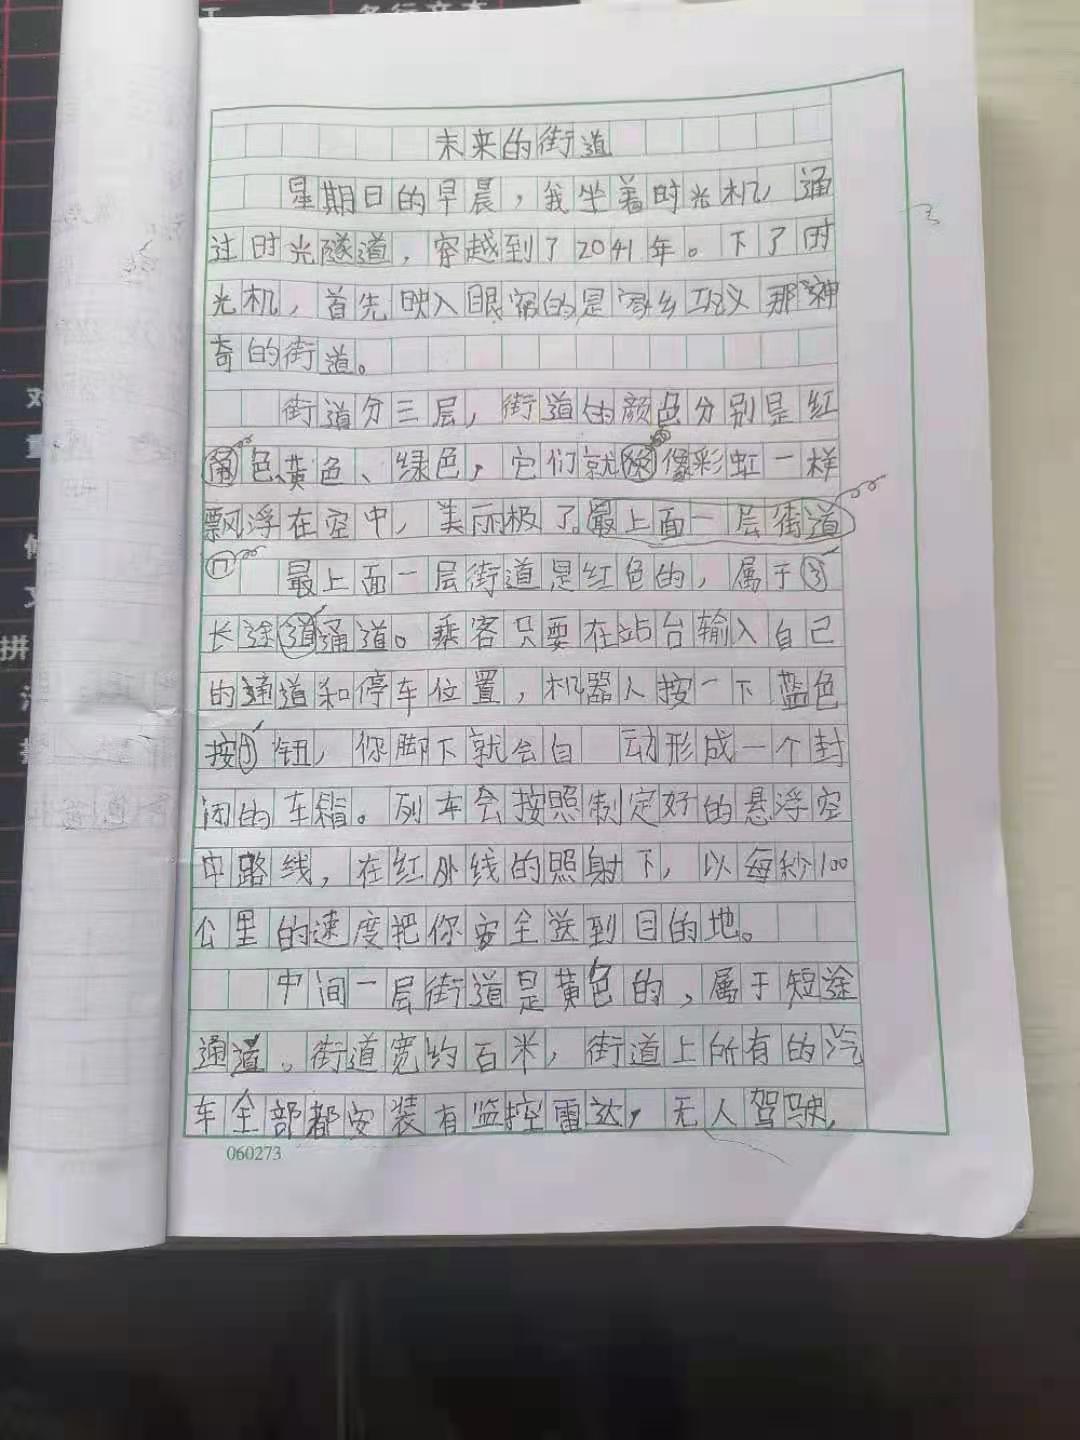 未来的街道
星期日的早晨，我坐着时光机，通
过时光隧道，穿越到了2041年。下了时
光机，首先映入眼帘的是 那神
奇的街道。
街道分三层，街道的颜色分别是红
色、黄色、绿色，它们就像彩虹一样
飘浮在空中，美丽极了。最上面一层街道
最上面一层街道是红色的，属于
长途道通道。乘客只要在站台输入自己
的通道和停车位置，机器人按一下蓝色
按钮，你脚下就会自动形成一个封
闭的车箱。列车会按照制定好的悬浮空
中路线，在红外线的照射下，以每秒100
公里的速度把你安全送到目的地。
中间一层街道是黄色的，属于短途
通道。街道宽约百米，街道上所有的汽
车全部都安装有监控雷达，无人驾驶，
060273